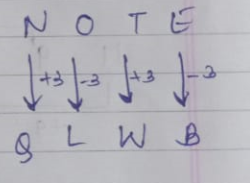 N O T E
+3 -3 +3 -3
Q L W B